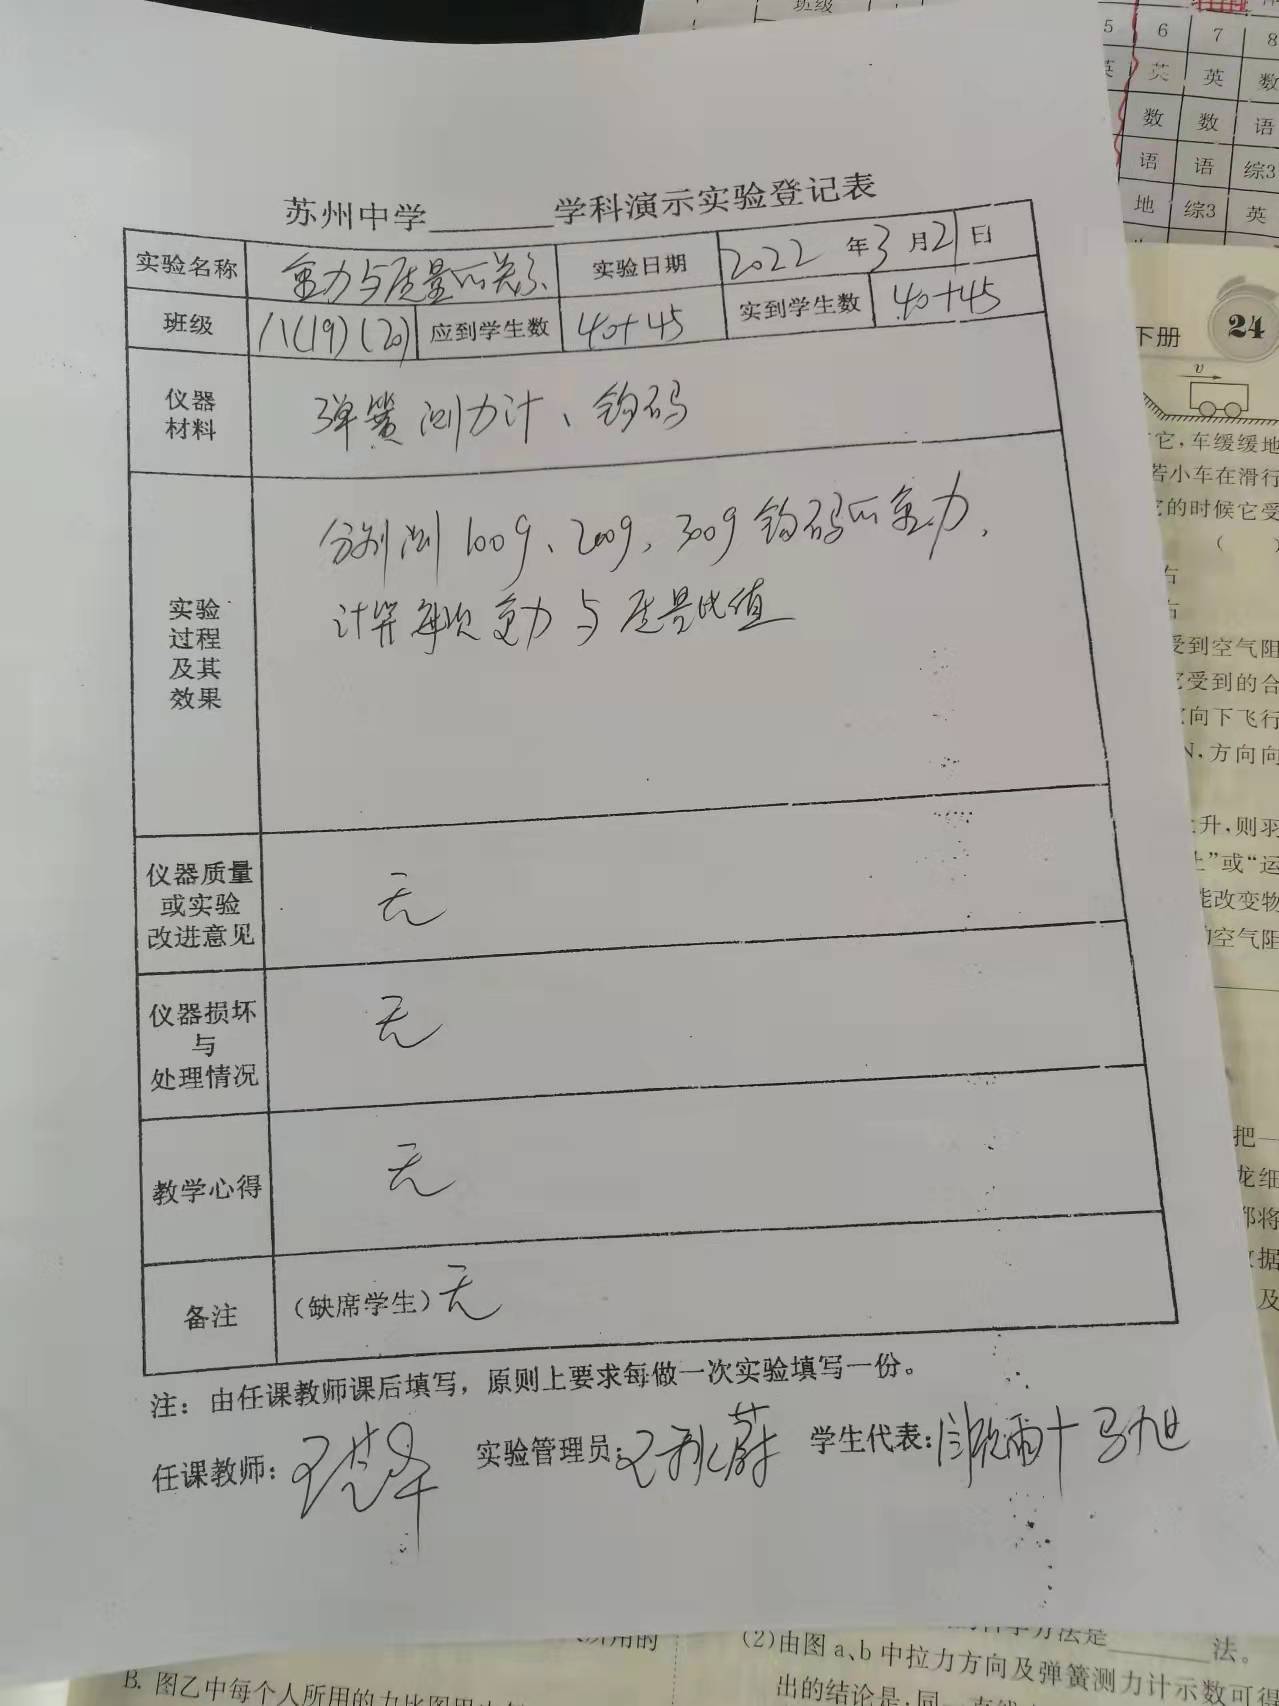 苏州中学______学科演示实验登记表
实验名称 重力与质量的关系 实验日期 2022 年 3 月 21 日
班级 八(19)(20) 应到学生数 40+45 实到学生数 40+45
仪器
材料
弹簧测力计、钩码
分别测100g、200g、300g钩码的重力,
计算每次重力与质量比值
实验
过程
及其
效果
仪器质量
或实验
改进意见
无
仪器损坏
与
处理情况
无
教学心得 无
备注 (缺席学生) 无
注:由任课教师课后填写,原则上要求每做一次实验填写一份。
任课教师: 实验管理员: 学生代表:
班级
5 6 7 8
英 英 英 数
数 数 语
语 语 综3
地 综3 英
下册 24
v
它,车缓缓地
若小车在滑行
它的时候它受
( )
右
右
受到空气阻
它受到的合
向下飞行
N,方向向
上升,则羽
止”或“运
能改变物
的空气阻
把一
龙细
都将
据
及
所用的
B. 图乙中每个人所用的力比图甲
方法是______法。
(2)由图a、b中拉力方向及弹簧测力计示数可得
出的结论是:同一直线